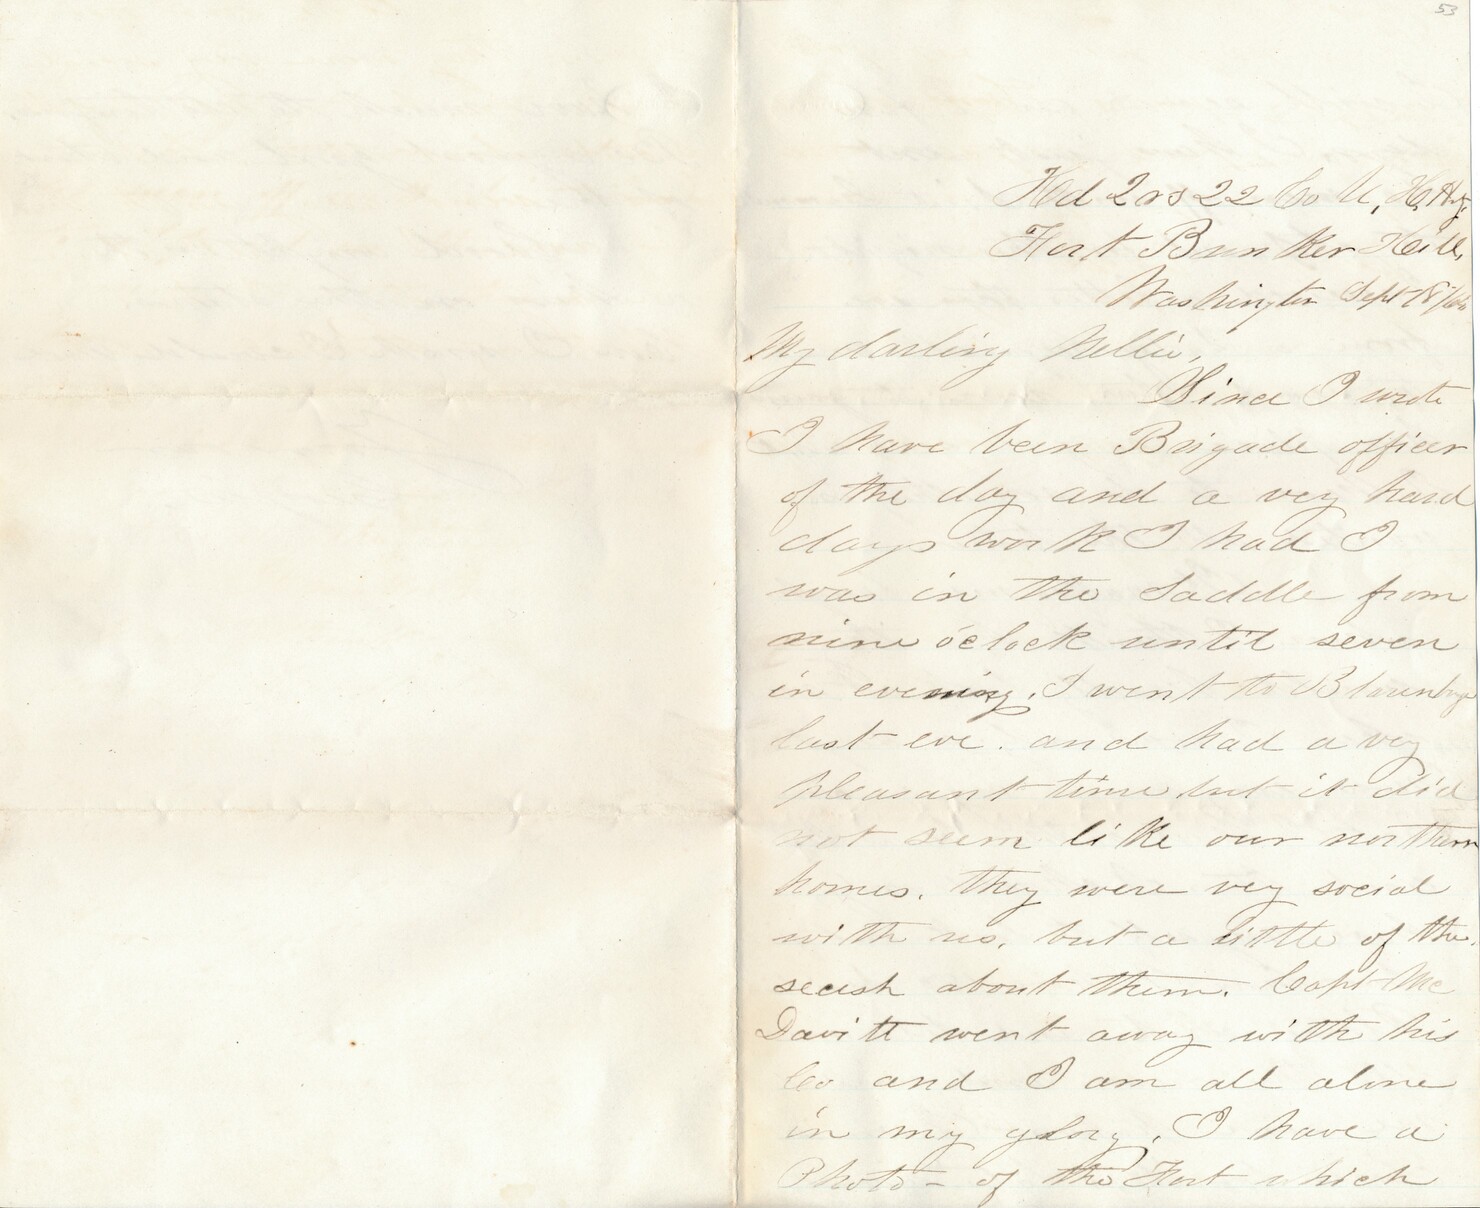 53
Hd 2rs 22 Co U, H, Ay,
Fort Bunker Hill,
Washington Sept 18/
My darling Nellie,
Since I wrote
I have been Brigade officer
of the day and a very hard
days work I had I
was in the saddle from
nine o'clock until seven
in evening. I went to
last eve. and had a very
pleasant time but it did
not seem like our northern
homes. they were very social
with us. but a little of the
secesh about them. Capt Mc
Davitt went away with his
Co and I am all alone
in my glory. I have a
Photo - of the Fort which